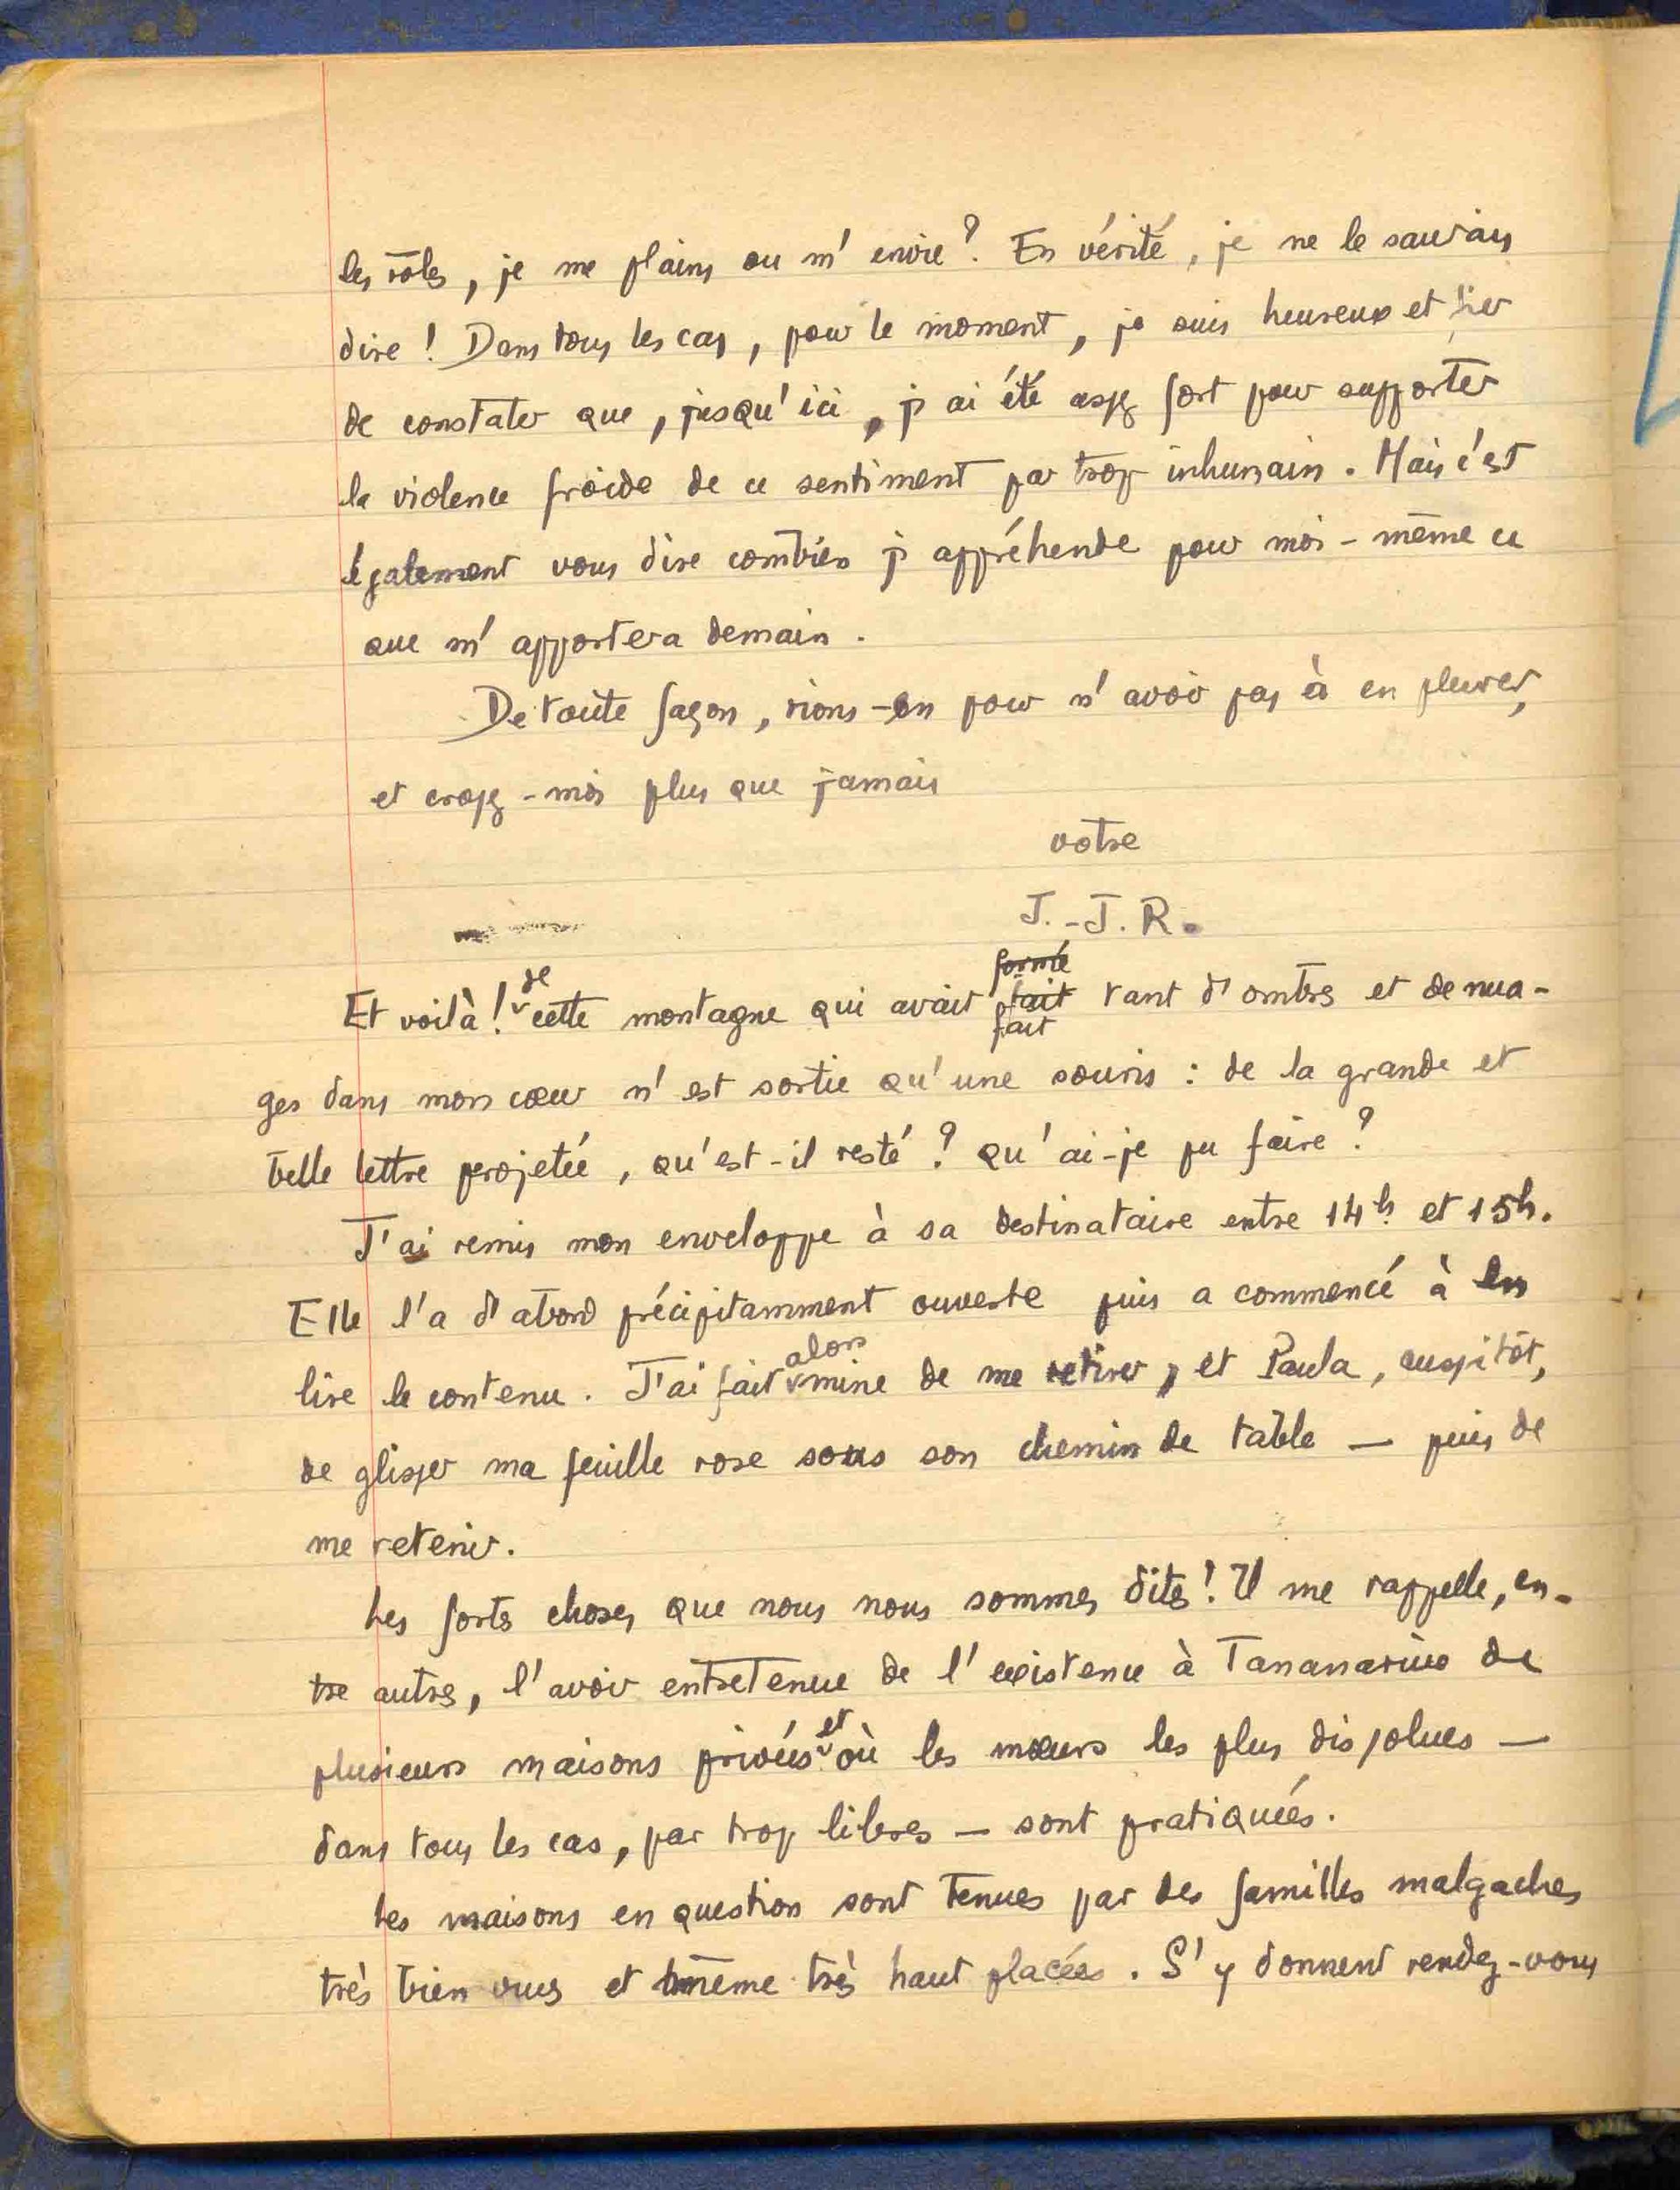 les rôles, je me plains ou m'envie? En vérité, je ne le saurais
dire! Dans tous les cas, pour le moment, je suis heureux et fier
de constater que, jusqu'ici, j'ai été assez fort pour supporter
la violence froide de ce sentiment par trop inhumain. Mais c'est
également vous dire combien j'appréhende pour moi-même ce
que m'apportera demain.
De toute façon, rions-en pour n'avoir pas à en pleurer,
et croyez-moi plus que jamais
votre
J.-J.R.
Et voilà! de cette montagne qui avait formé fait fait tant d'ombres et de nua-
ges dans mon cœur n'est sortie qu'une souris : de la grande et
belle lettre projetée, qu'est-il resté? qu'ai-je pu faire?
J'ai remis mon enveloppe à sa destinataire entre 14h. et 15h.
Elle l'a d'abord précipitamment ouverte puis a commencé à en
lire le contenu. J'ai fait alors mine de me retirer, et Paula, aussitôt,
de glisser ma feuille rose sous son chemin de table — puis de
me retenir.
Les fortes choses que nous nous sommes dites! Il me rappelle, en-
tre autres, l'avoir entretenue de l'existence à Tananarive de
plusieurs maisons privées et où les mœurs les plus dissolues —
dans tous les cas, par trop libres — sont pratiquées.
Les maisons en question sont tenues par des familles malgaches
très bien vues et même très haut placées. S'y donnent rendez-vous